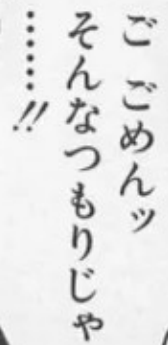 ご ごめんッ
そんなつもりじゃ
……!!